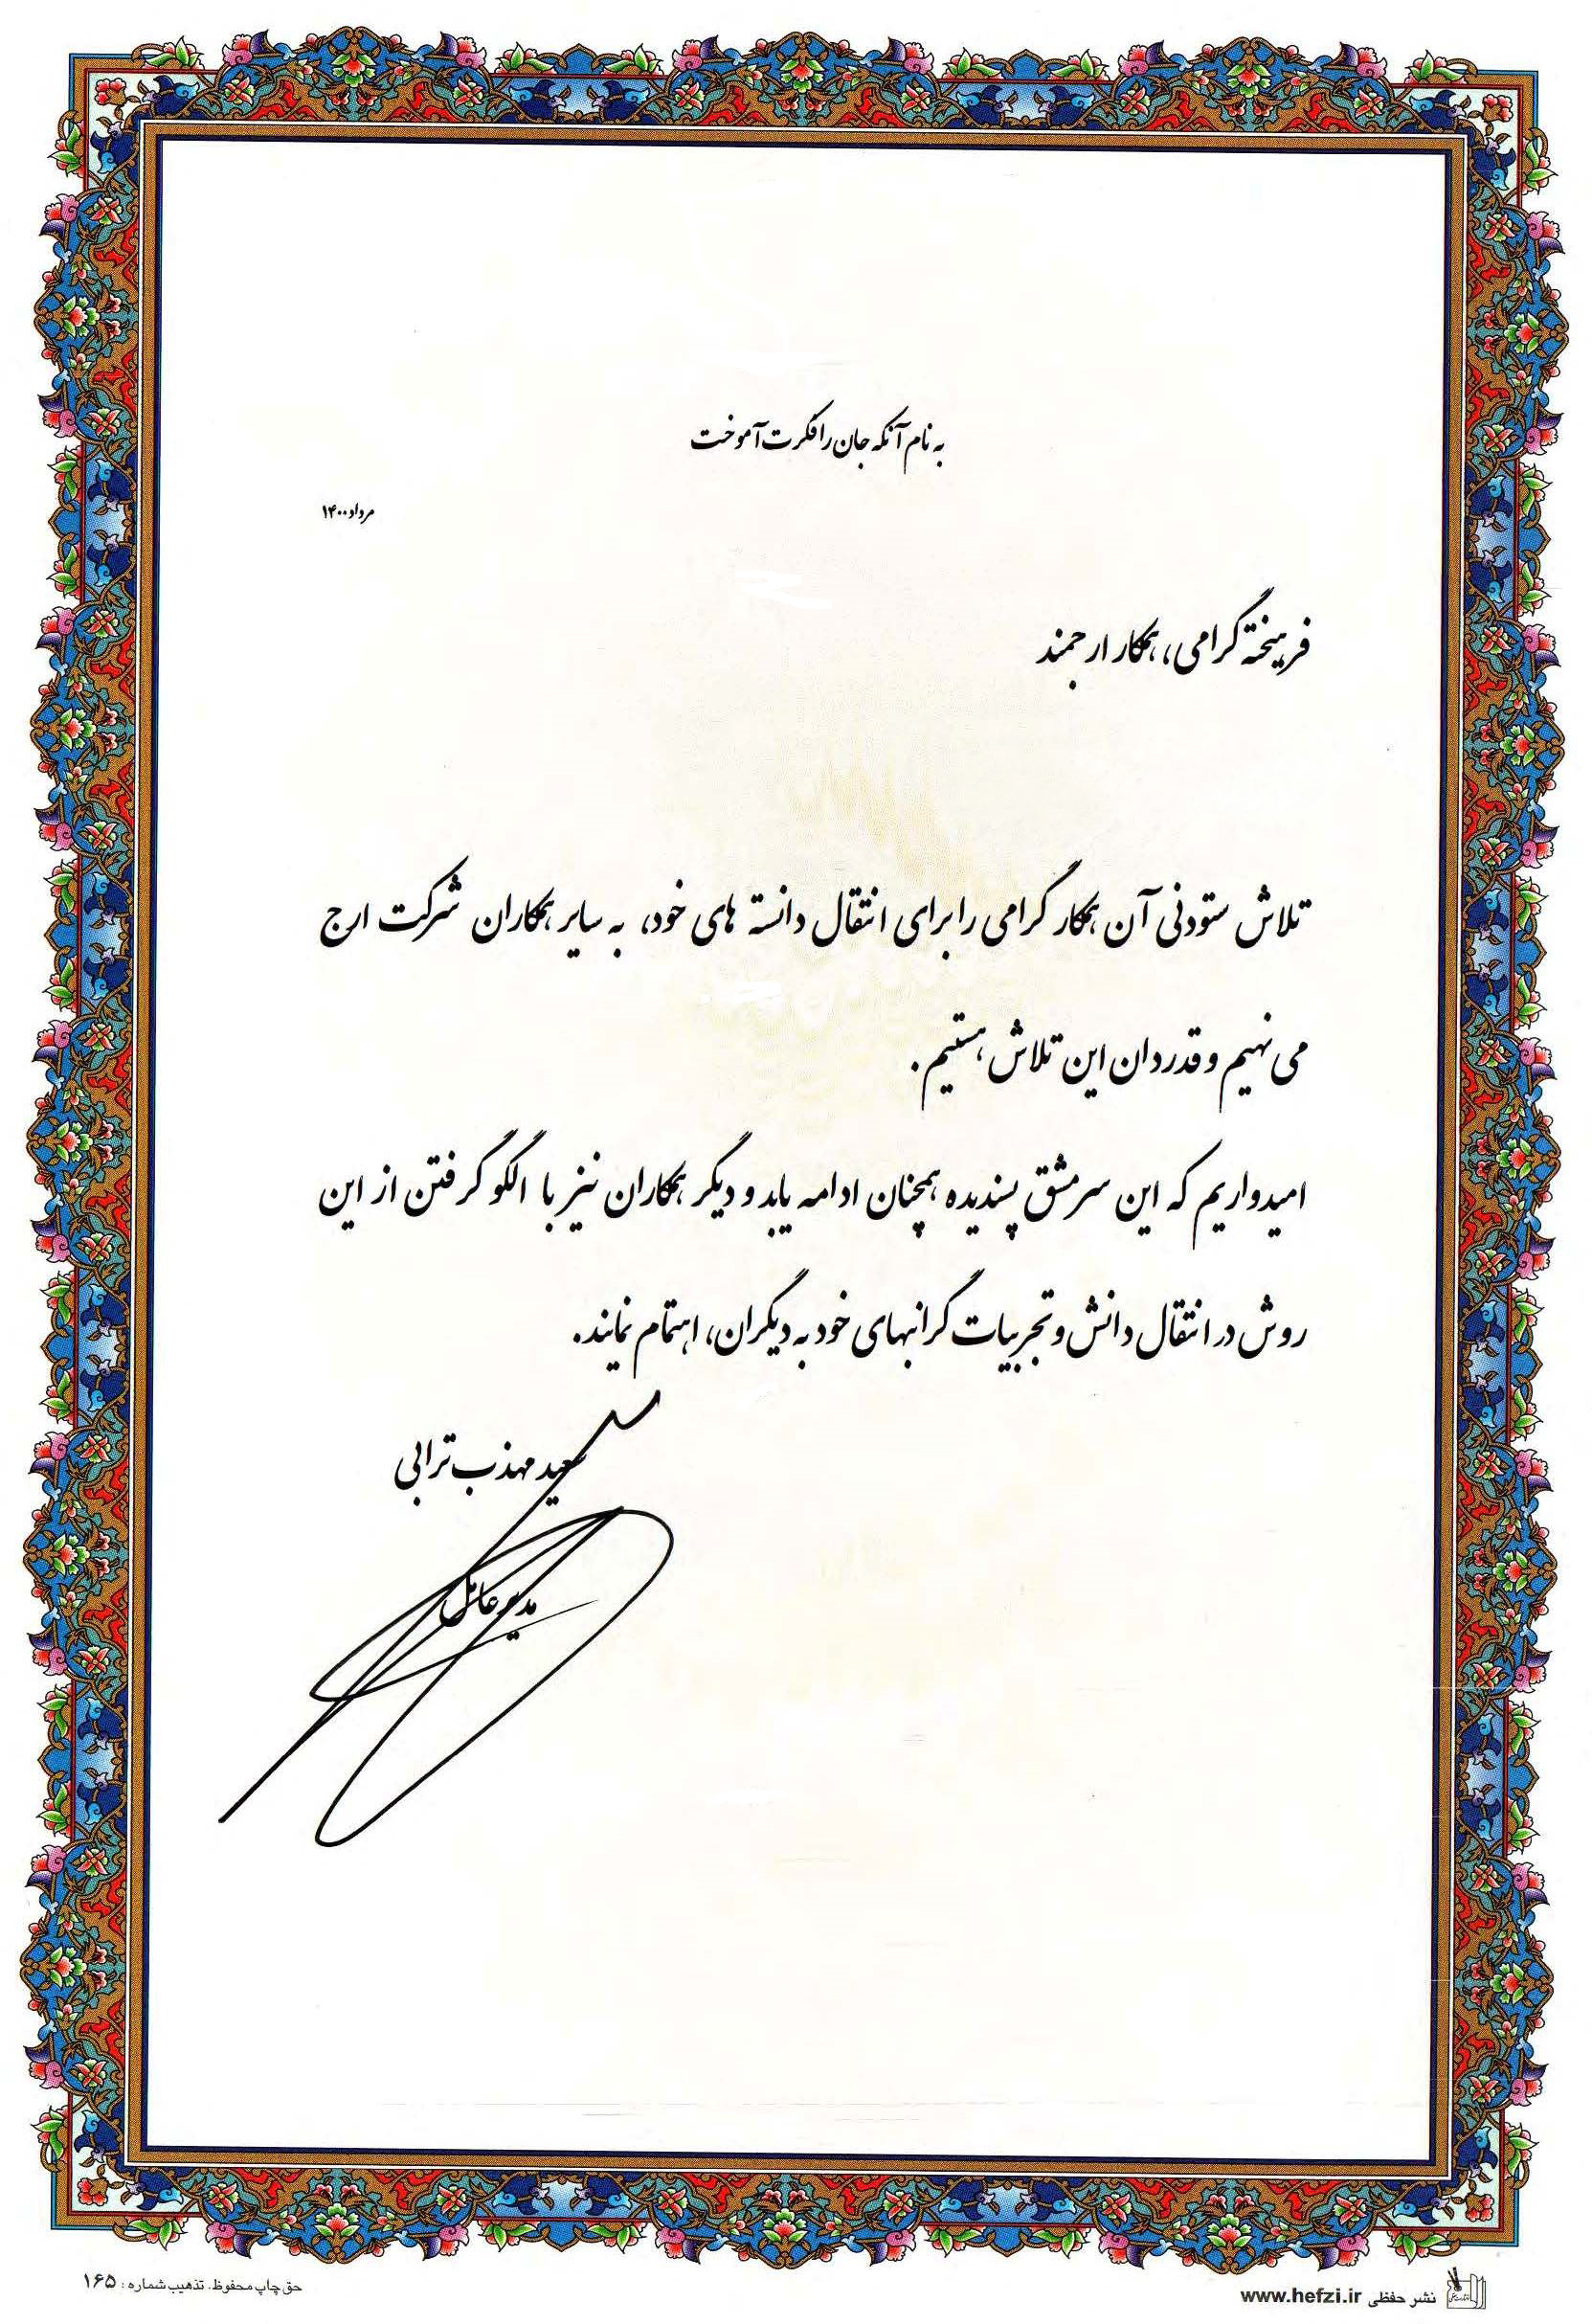 به نام آنکه جان را فکرت آموخت
مرداد ۱۴۰۰
فرهیختهٔ گرامی، همکار ارجمند
تلاش ستودنی آن همکار گرامی را برای انتقال دانسته های خود، به سایر همکاران شرکت ارج
می نهیم و قدردان این تلاش هستیم.
امیدواریم که این سرمشق پسندیده همچنان ادامه یابد و دیگر همکاران نیز با الگو گرفتن از این
روش در انتقال دانش و تجربیات گرانبهای خود به دیگران، اهتمام نمایند.
سعید مهذب ترابی
مدیر عامل
نشر حفظی www.hefzi.ir
حق چاپ محفوظ. تذهیب شماره: ۱۶۵